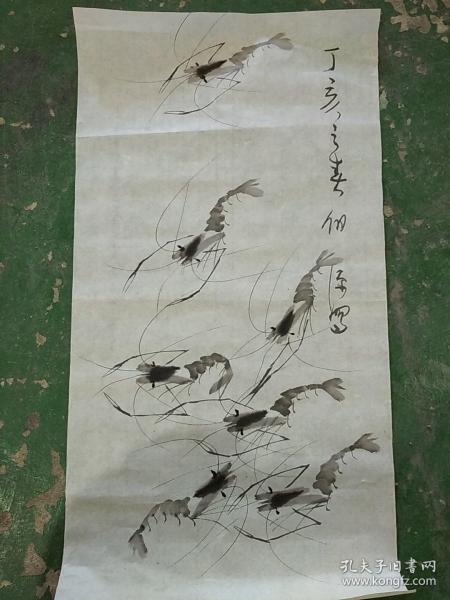 丁亥之春仲
写
孔夫子旧书网
www.kongfz.com